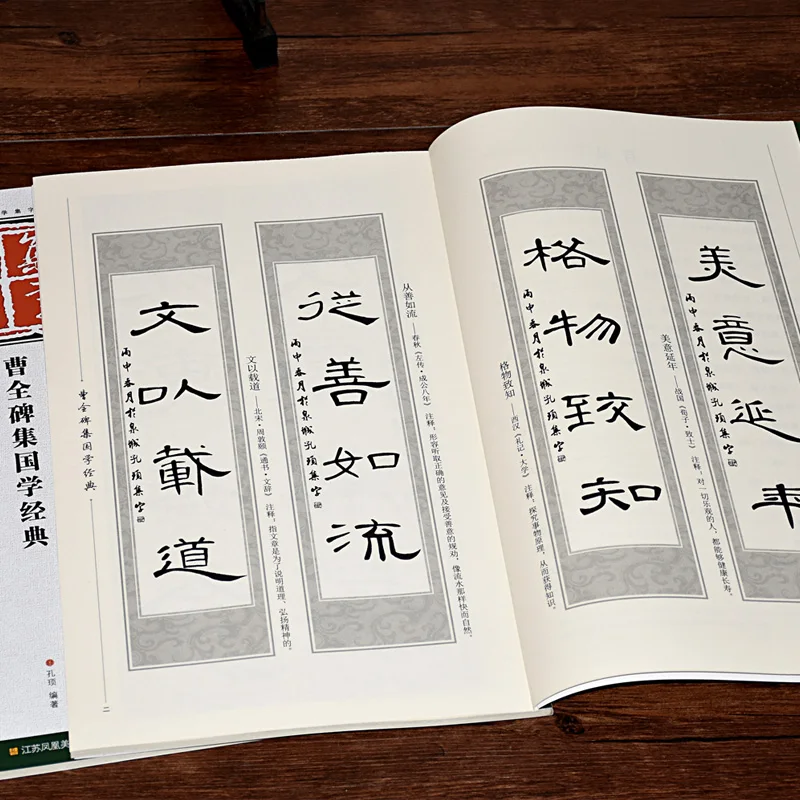 美意延年
美意延年——战国《荀子·致士》 注释：对一切乐观的人，都能够健康长寿。
格物致知
丙申春月於泉城孔頊集字
格物致知——西汉《礼记·大学》 注释：探究事物原理，从而获得知识。
從善如流
丙申春月於泉城孔頊集字
从善如流——春秋《左传·成公八年》 注释：形容听取正确的意见及接受善意的规劝，像流水那样快而自然。
文以載道
丙申春月於泉城孔頊集字
文以载道——北宋·周敦颐《通书·文辞》 注释：指文章是为了说明道理、弘扬精神的。
曹全碑集国学经典
二
曹全碑集国学经典
孔顼 编著
江苏凤凰美